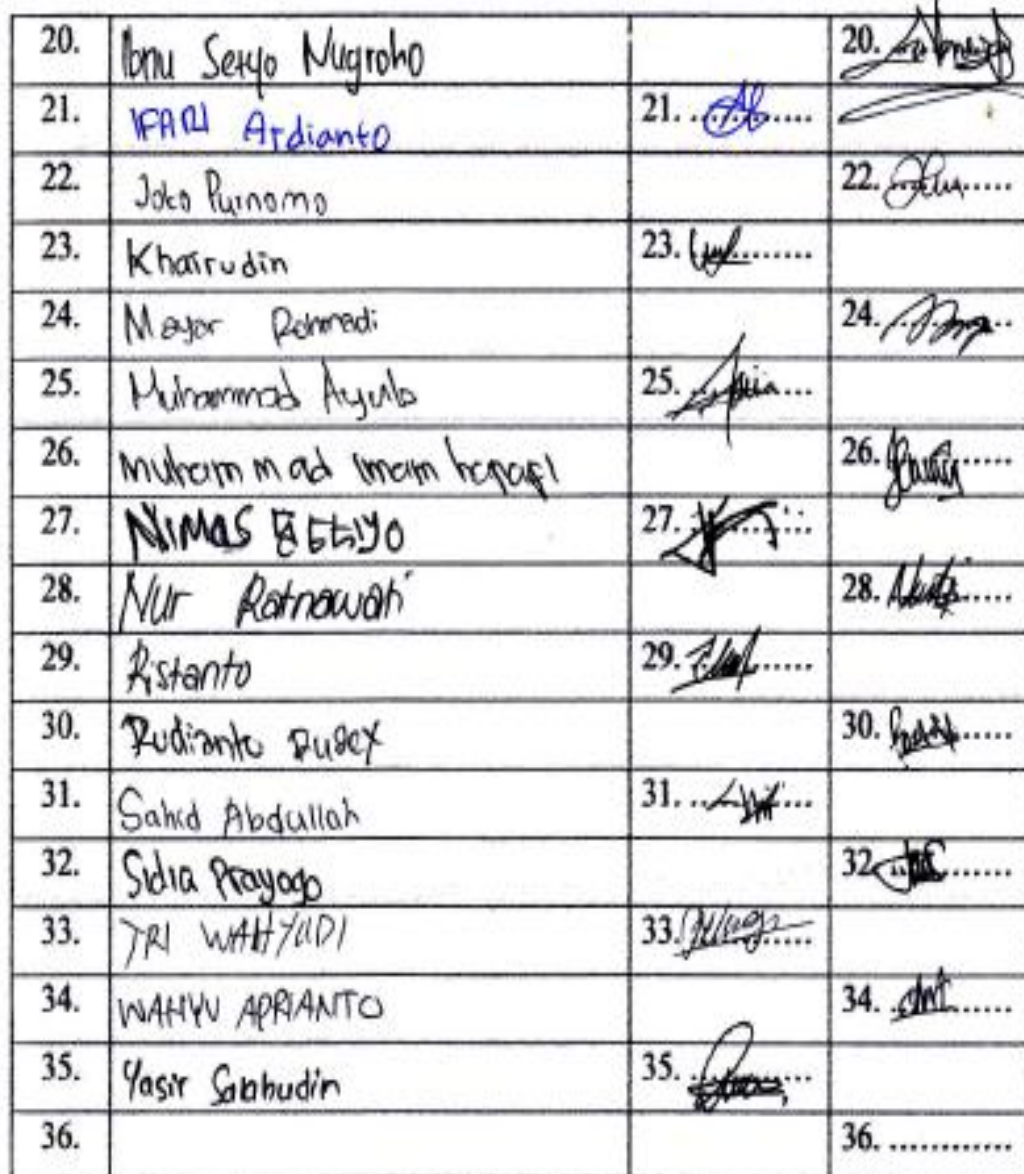 20. Ibnu Setyo Nugroho 20.
21. IFARI Ardianto 21.
22. Joko Purnomo 22.
23. Khairudin 23.
24. Mayar Rohmadi 24.
25. Muhammad Ayub 25.
26. Muhammad imam hanafi 26.
27. NIMAS 27.
28. Nur Ratnawati 28.
29. Ristanto 29.
30. Rudianto 30.
31. Sahid Abdullah 31.
32. Sidia Prayogo 32.
33. TRI WAHYUDI 33.
34. WAHYU APRIANTO 34.
35. Yasir Salahudin 35.
36. 36. ............